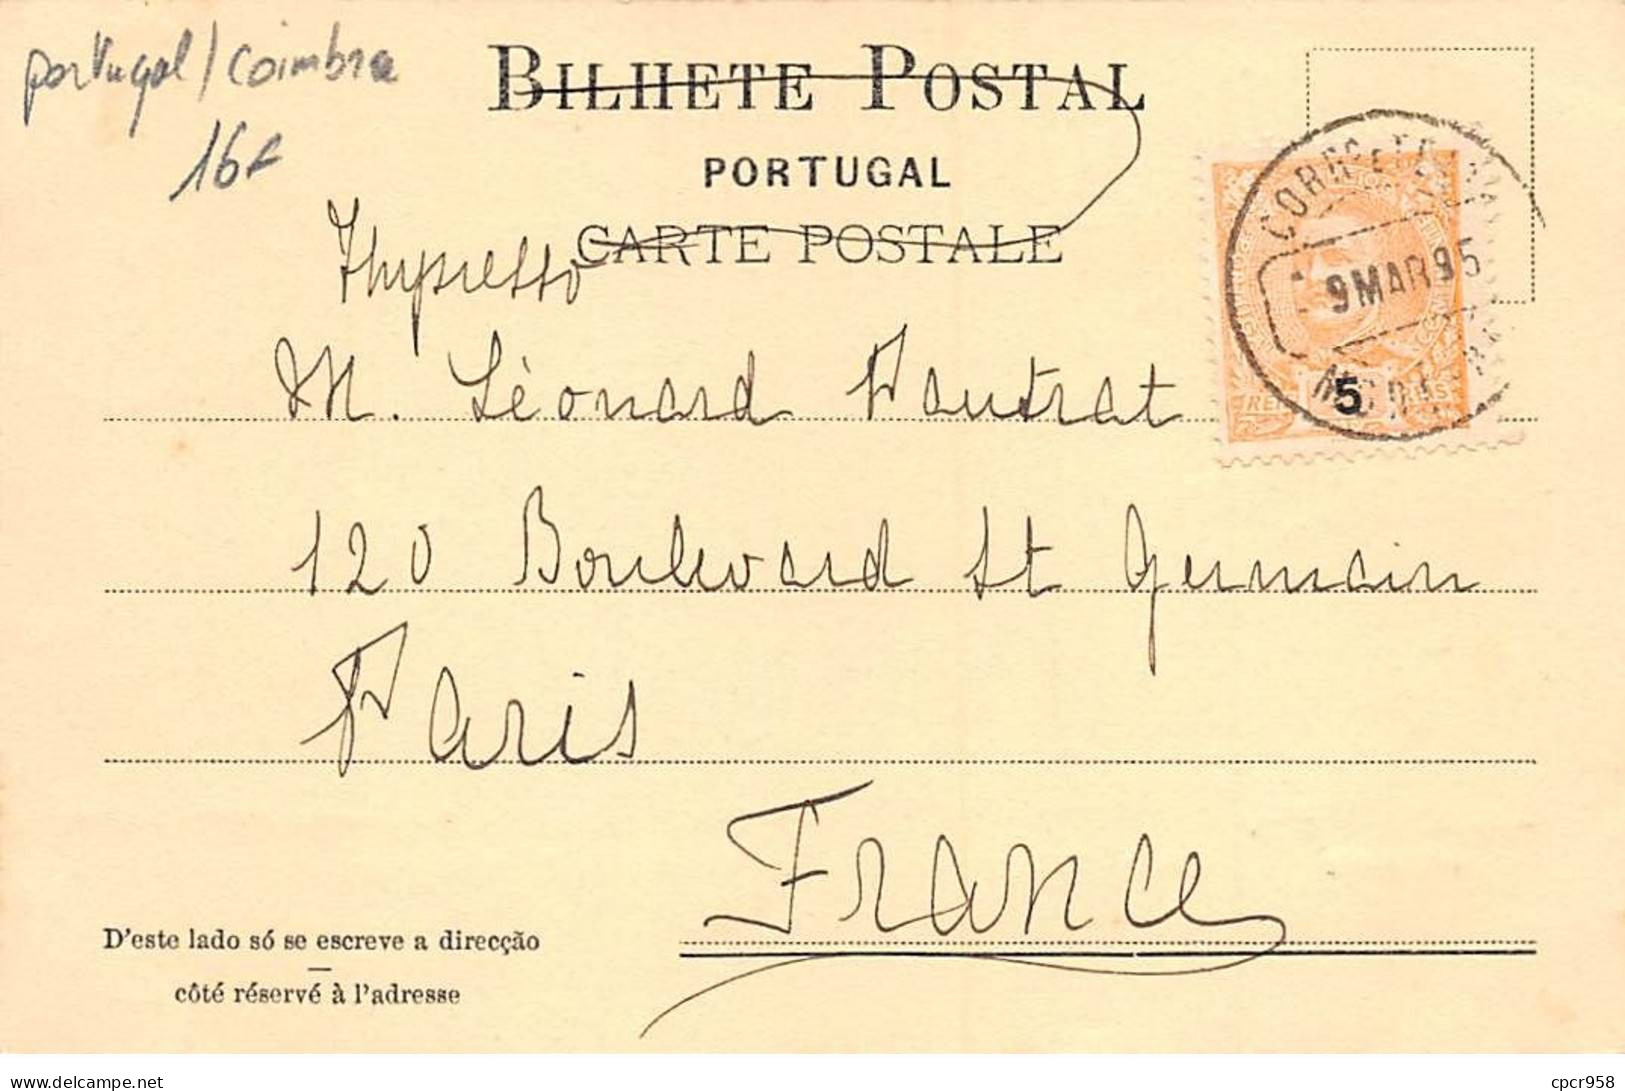 Portugal / Coimbra
16F
BILHETE POSTAL
PORTUGAL
CARTE POSTALE
CORRº E TE
9 MAR 95
5
REIS
M. Léonard Vautrat
120 Boulevard St Germain
Paris
France
D'este lado só se escreve a direcção
côté réservé à l'adresse
delcampe.net
cpcr958